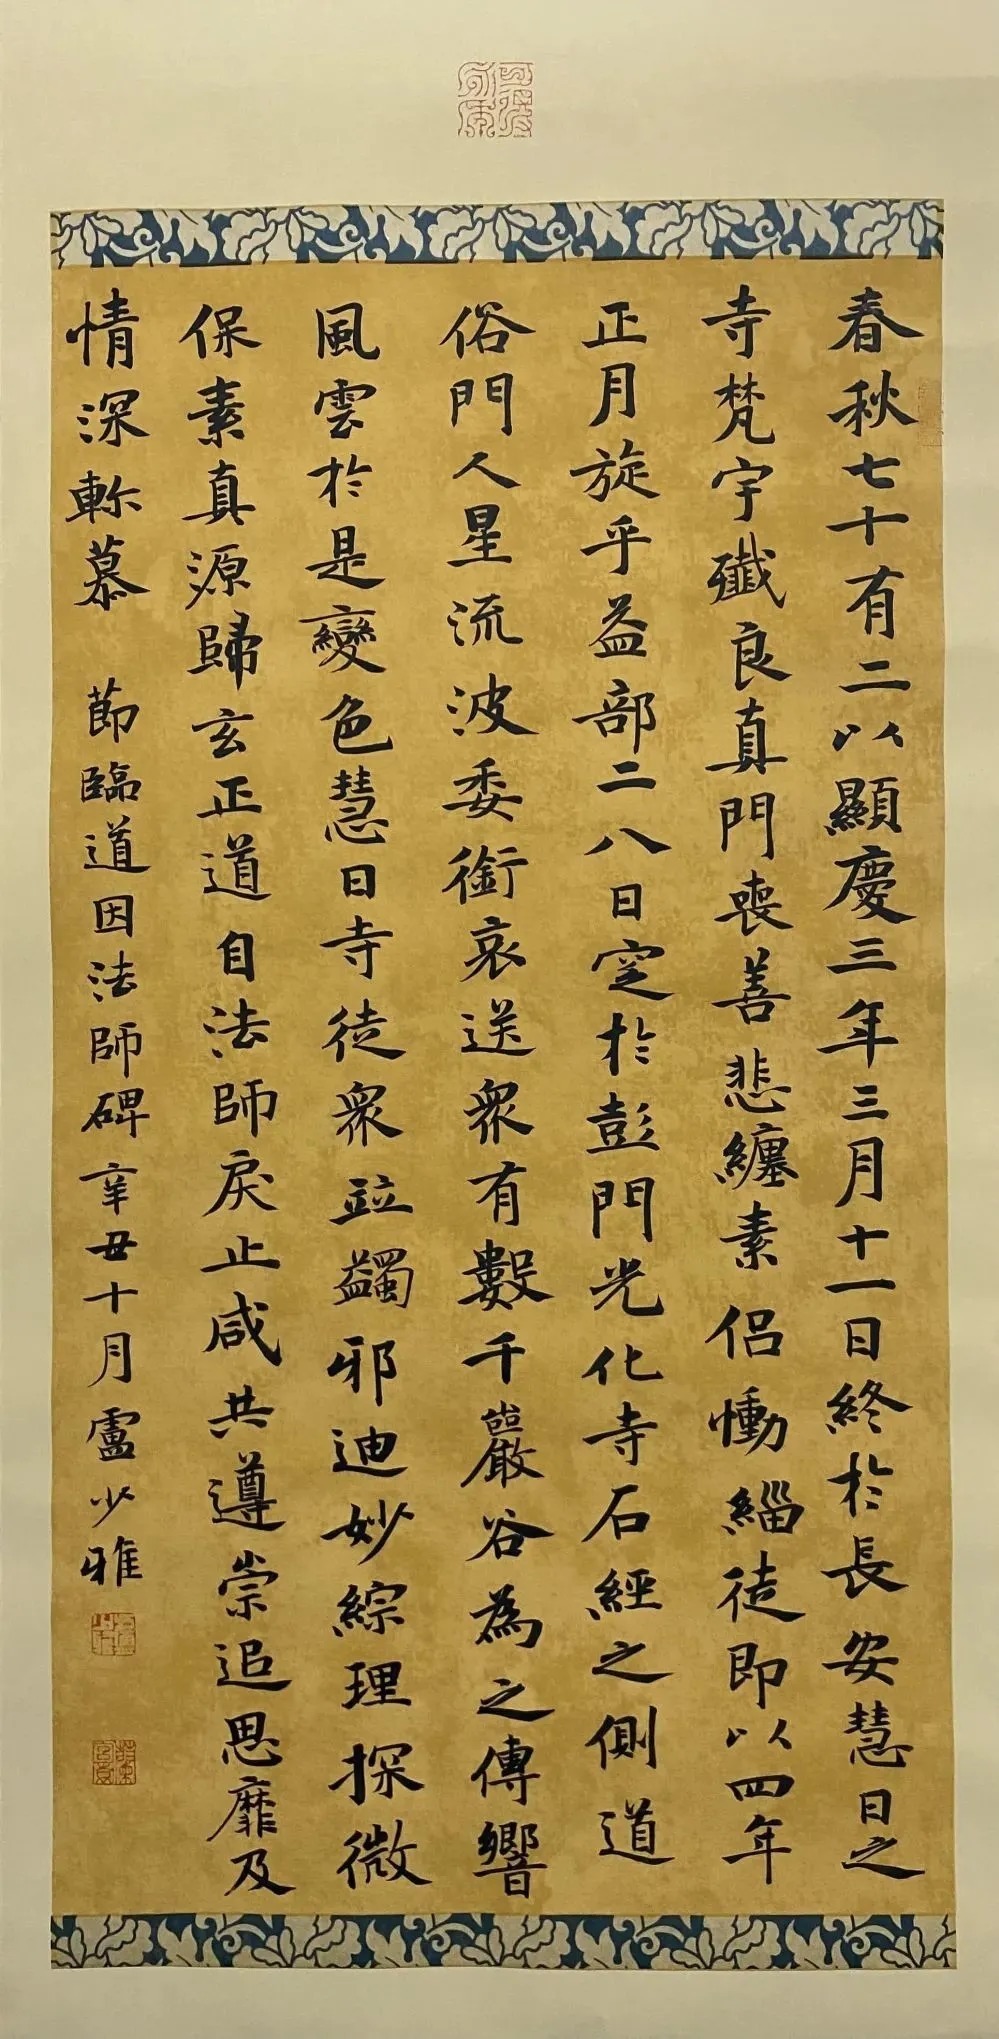 春秋七十有二以顯慶三年三月十一日終於長安慧日之
寺梵宇殲良真門喪善悲纏素侶慟緇徒即以四年
正月旋乎益部二八日窆於彭門光化寺石經之側道
俗門人星流波委銜哀送眾有數千巖谷為之傳響
風雲於是變色慧日寺徒眾並蠲邪迪妙綜理探微
保素真源歸玄正道自法師戾止咸共遵崇追思靡及
情深軫慕 節臨道因法師碑辛丑十月盧少雅